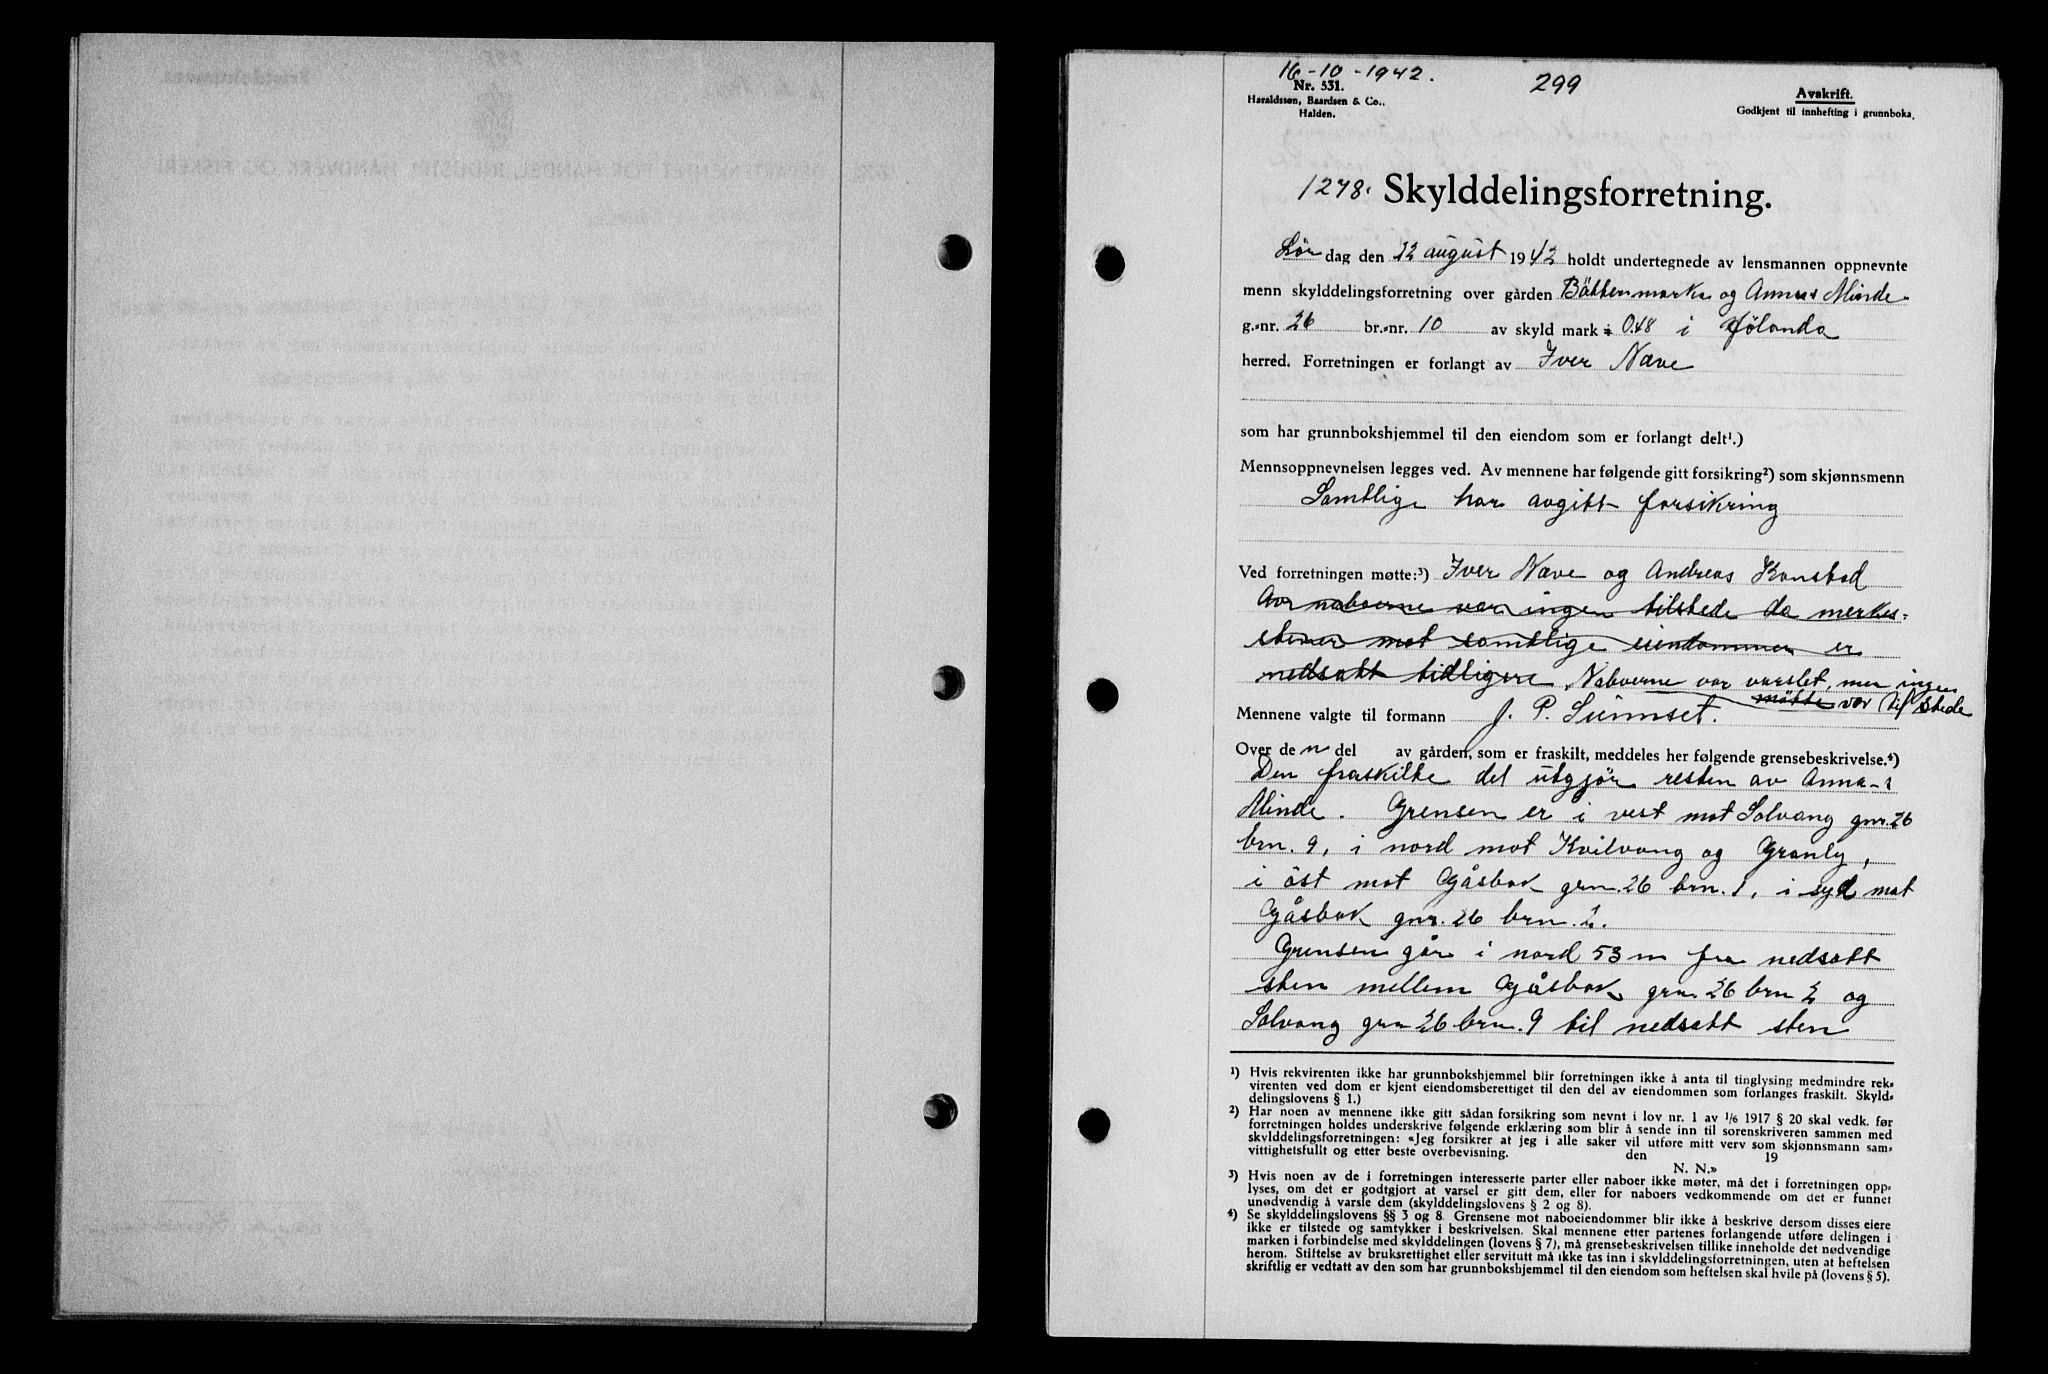 16-10-1942.
299
Nr. 531.
Haraldssen, Baardsen & Co.,
Halden.
Avskrift.
Godkjent til innhefting i grunnboka.
1278. Skylddelingsforretning.
Lör dag den 22 august 1942 holdt undertegnede av lensmannen oppnevnte
menn skylddelingsforretning over gården Båttenmarka og Annas Minde
g.-nr. 26 br.-nr. 10 av skyld mark 0.48 i Hölanda
herred. Forretningen er forlangt av Iver Næve
som har grunnbokshjemmel til den eiendom som er forlangt delt¹.)
Mennsoppnevnelsen legges ved. Av mennene har følgende gitt forsikring²) som skjønnsmenn
Samtlige har avgitt forsikring
Ved forretningen møtte:³) Iver Næve og Andreas Konstad
Av naboerne var ingen tilstede da merkes-
stener mot samtlige eiendommer er
nedsatt tidligere Naboerne var varslet, men ingen
møtte var til stede
Mennene valgte til formann J. P. Sunnset.
Over de n del av gården, som er fraskilt, meddeles her følgende grensebeskrivelse.⁴)
Den fraskilte del utgjör resten av Anna-s
Minde. Grensen er i vest mot Solvang gnr. 26
brn. 9, i nord mot Kvilvang og Granly,
i öst mot Gåsbak grn. 26 brn. 1, i syd mot
Gåsbak gnr. 26 brn. 2.
Grensen går i nord 53 m fra nedsatt
sten mellem Gåsbak grn 26 brn 2 og
Solvang grn 26 brn. 9 til nedsatt sten
¹) Hvis rekvirenten ikke har grunnbokshjemmel blir forretningen ikke å anta til tinglysing medmindre rek-
virenten ved dom er kjent eiendomsberettiget til den del av eiendommen som forlanges fraskilt. Skyld-
delingslovens § 1.)
²) Har noen av mennene ikke gitt sådan forsikring som nevnt i lov nr. 1 av 1/6 1917 § 20 skal vedk. før
forretningen holdes underskrive følgende erklæring som blir å sende inn til sorenskriveren sammen med
skylddelingsforretningen: «Jeg forsikrer at jeg i alle saker vil utføre mitt verv som skjønnsmann sam-
vittighetsfullt og etter beste overbevisning. den 19
N. N.»
³) Hvis noen av de i forretningen interesserte parter eller naboer ikke møter, må det i forretningen opp-
lyses, om det er godtgjort at varsel er gitt dem, eller for naboers vedkommende om det er funnet
unødvendig å varsle dem (skylddelingslovens § 2 og 8).
⁴) Se skylddelingslovens §§ 3 og 8. Grensene mot naboeiendommer blir ikke å beskrive dersom disses eiere
ikke er tilstede og samtykker i beskrivelsen. Skal mennene etter partenes forlangende utføre delingen i
marken i forbindelse med skylddelingen (lovens § 7), må grensebeskrivelsen tillike inneholde det nødvendige
herom. Stiftelse av bruksrettighet eller servitutt må ikke tas inn i skylddelingsforretningen, uten at heftelsen
skriftlig er vedtatt av den som har grunnbokshjemmel til den eiendom som heftelsen skal hvile på (lovens § 5).